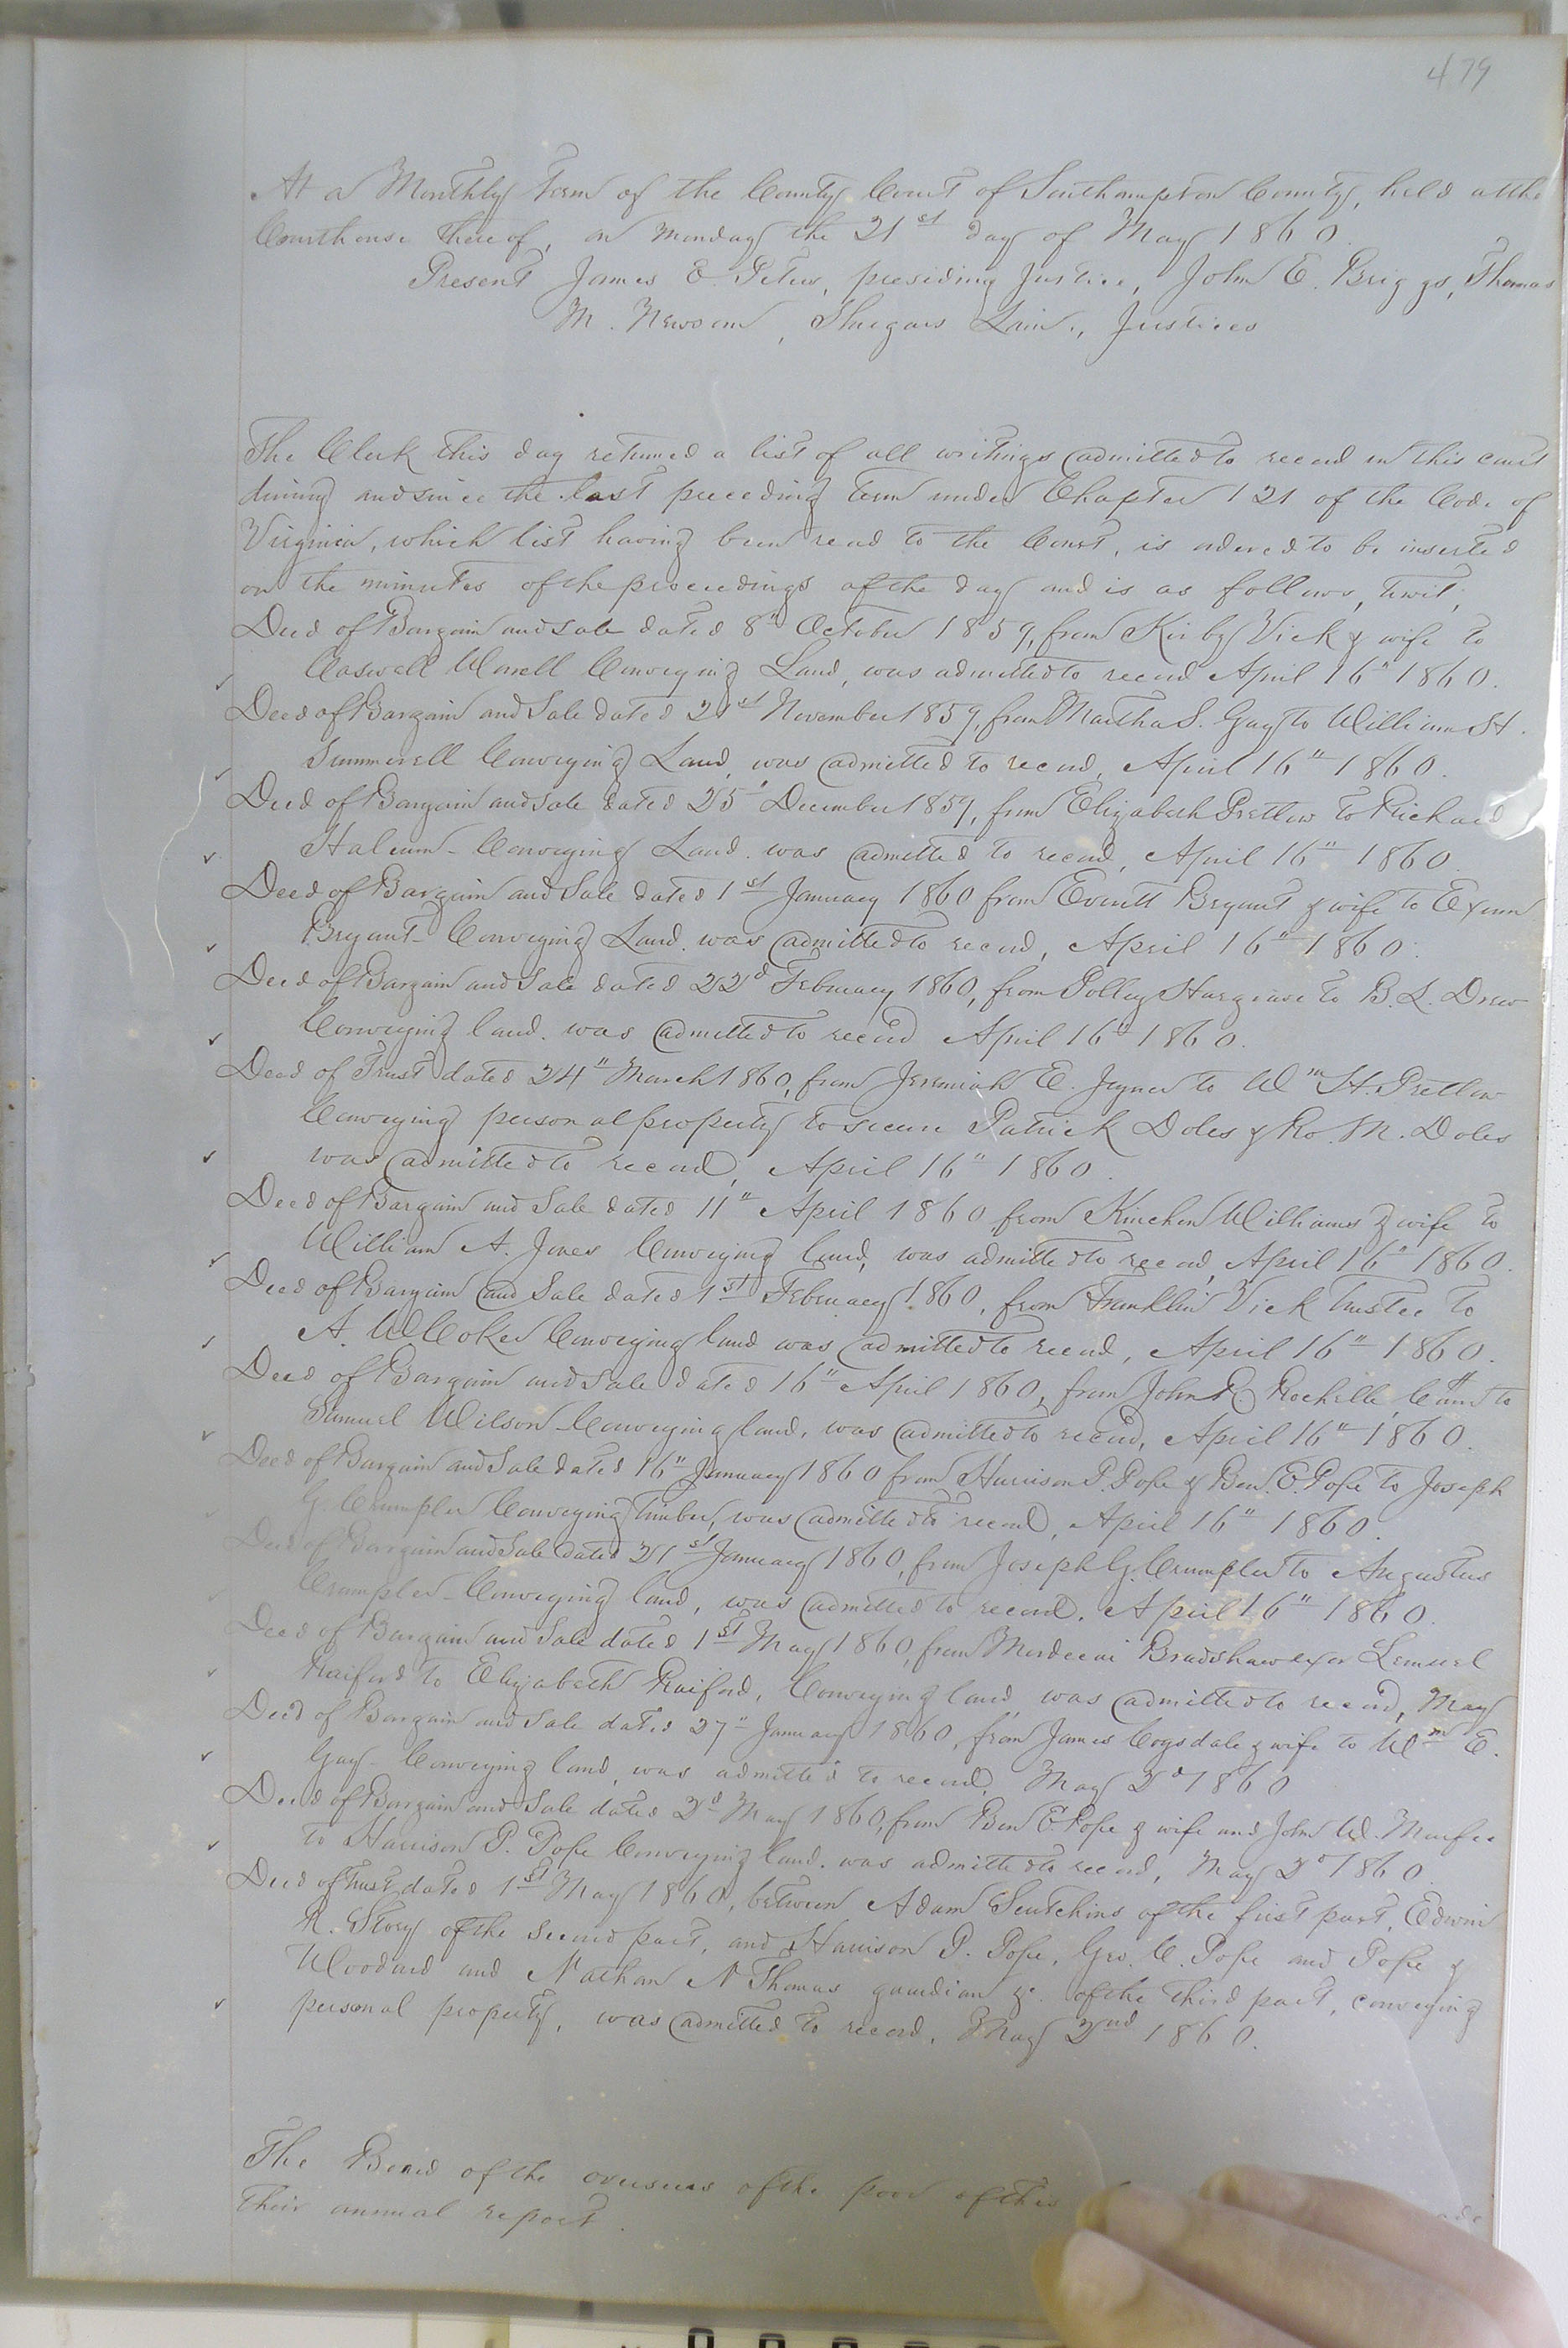 479
At a Monthly Term of the County Court of Southampton County, held at the
Courthouse thereof, on Monday the 21st day of May 1860.
Present James E. Peters, presiding Justice, John E. Briggs, Thomas
M. Newsom, Shugars Lain, Justices
The Clerk this day returned a list of all writings admitted to record in this court
during and since the last preceding term under Chapter 121 of the Code of
Virginia, which list having been read to the Court, is ordered to be inserted
on the minutes of the proceedings of the day and is as follows, towit;
Deed of Bargain and sale dated 8" October 1859, from Kirby Vick & wife to
Caswell Worrell Conveying Land, was admitted to record April 16" 1860.
Deed of Bargain and Sale dated 21st November 1859, from Martha S. Gay to William H.
Summerell Conveying Land, was admitted to record, April 16" 1860.
Deed of Bargain and sale dated 25" December 1859, from Elizabeth Pretlow to Richard
Halcum - Conveying Land. was admitted to record, April 16" 1860.
Deed of Bargain and Sale dated 1st January 1860 from Everett Bryant & wife to Exum
Bryant - Conveying Land. was admitted to record, April 16" 1860.
Deed of Bargain and Sale dated 22d February 1860, from Polley Hargrave to B. L. Drew
Conveying land. was admitted to record April 16" 1860.
Deed of Trust dated 24" March 1860, from Jeremiah E. Joyner to Wm H. Pretlow
Conveying personal property to secure Patrick Doles & Ro. M. Doles
was admitted to record, April 16" 1860.
Deed of Bargain and Sale dated 11" April 1860 from Kinchen Williams & wife to
William A. Jones Conveying land, was admitted to record, April 16" 1860.
Deed of Bargain and Sale dated 1st February 1860, from Franklin Vick Trustee to
A. W. Coker Conveying land was admitted to record, April 16" 1860.
Deed of Bargain and Sale dated 16" April 1860, from John R. Rochelle, to
Samuel Wilson - Conveying land, was admitted to record, April 16" 1860.
Deed of Bargain and Sale dated 16" January 1860 from Harrison P. Pope & Ben. E. Pope to Joseph
G. Crumpler Conveying timber, was admitted to record, April 16" 1860.
Deed of Bargain and Sale dated 21st January 1860, from Joseph G. Crumpler to Augustus
Crumpler - Conveying land, was admitted to record. April 16" 1860.
Deed of Bargain and Sale dated 1st May 1860, from Mordecai Bradshaw exor Lemuel
Raiford to Elizabeth Raiford, Conveying land was admitted to record, May
Deed of Bargain and Sale dated 27" January 1860, from James Cogsdale & wife to Wm E.
Gay - Conveying land, was admitted to record, May 2d 1860
Deed of Bargain and Sale dated 2d May 1860, from Ben E Pope & wife and John W. Murfee
to Harrison P. Pope Conveying land. was admitted to record, May 2d 1860.
Deed of trust dated 1st May 1860, between Adam Scutchins of the first part, Edwin
R. Story of the second part, and Harrison P. Pope, Geo. W. Pope and Pope &
Woodard and Nathan N Thomas guardian &c. of the third part, conveying
personal property, was admitted to record, May 2nd 1860.
The Board of the overseers of the poor of this
their annual report.